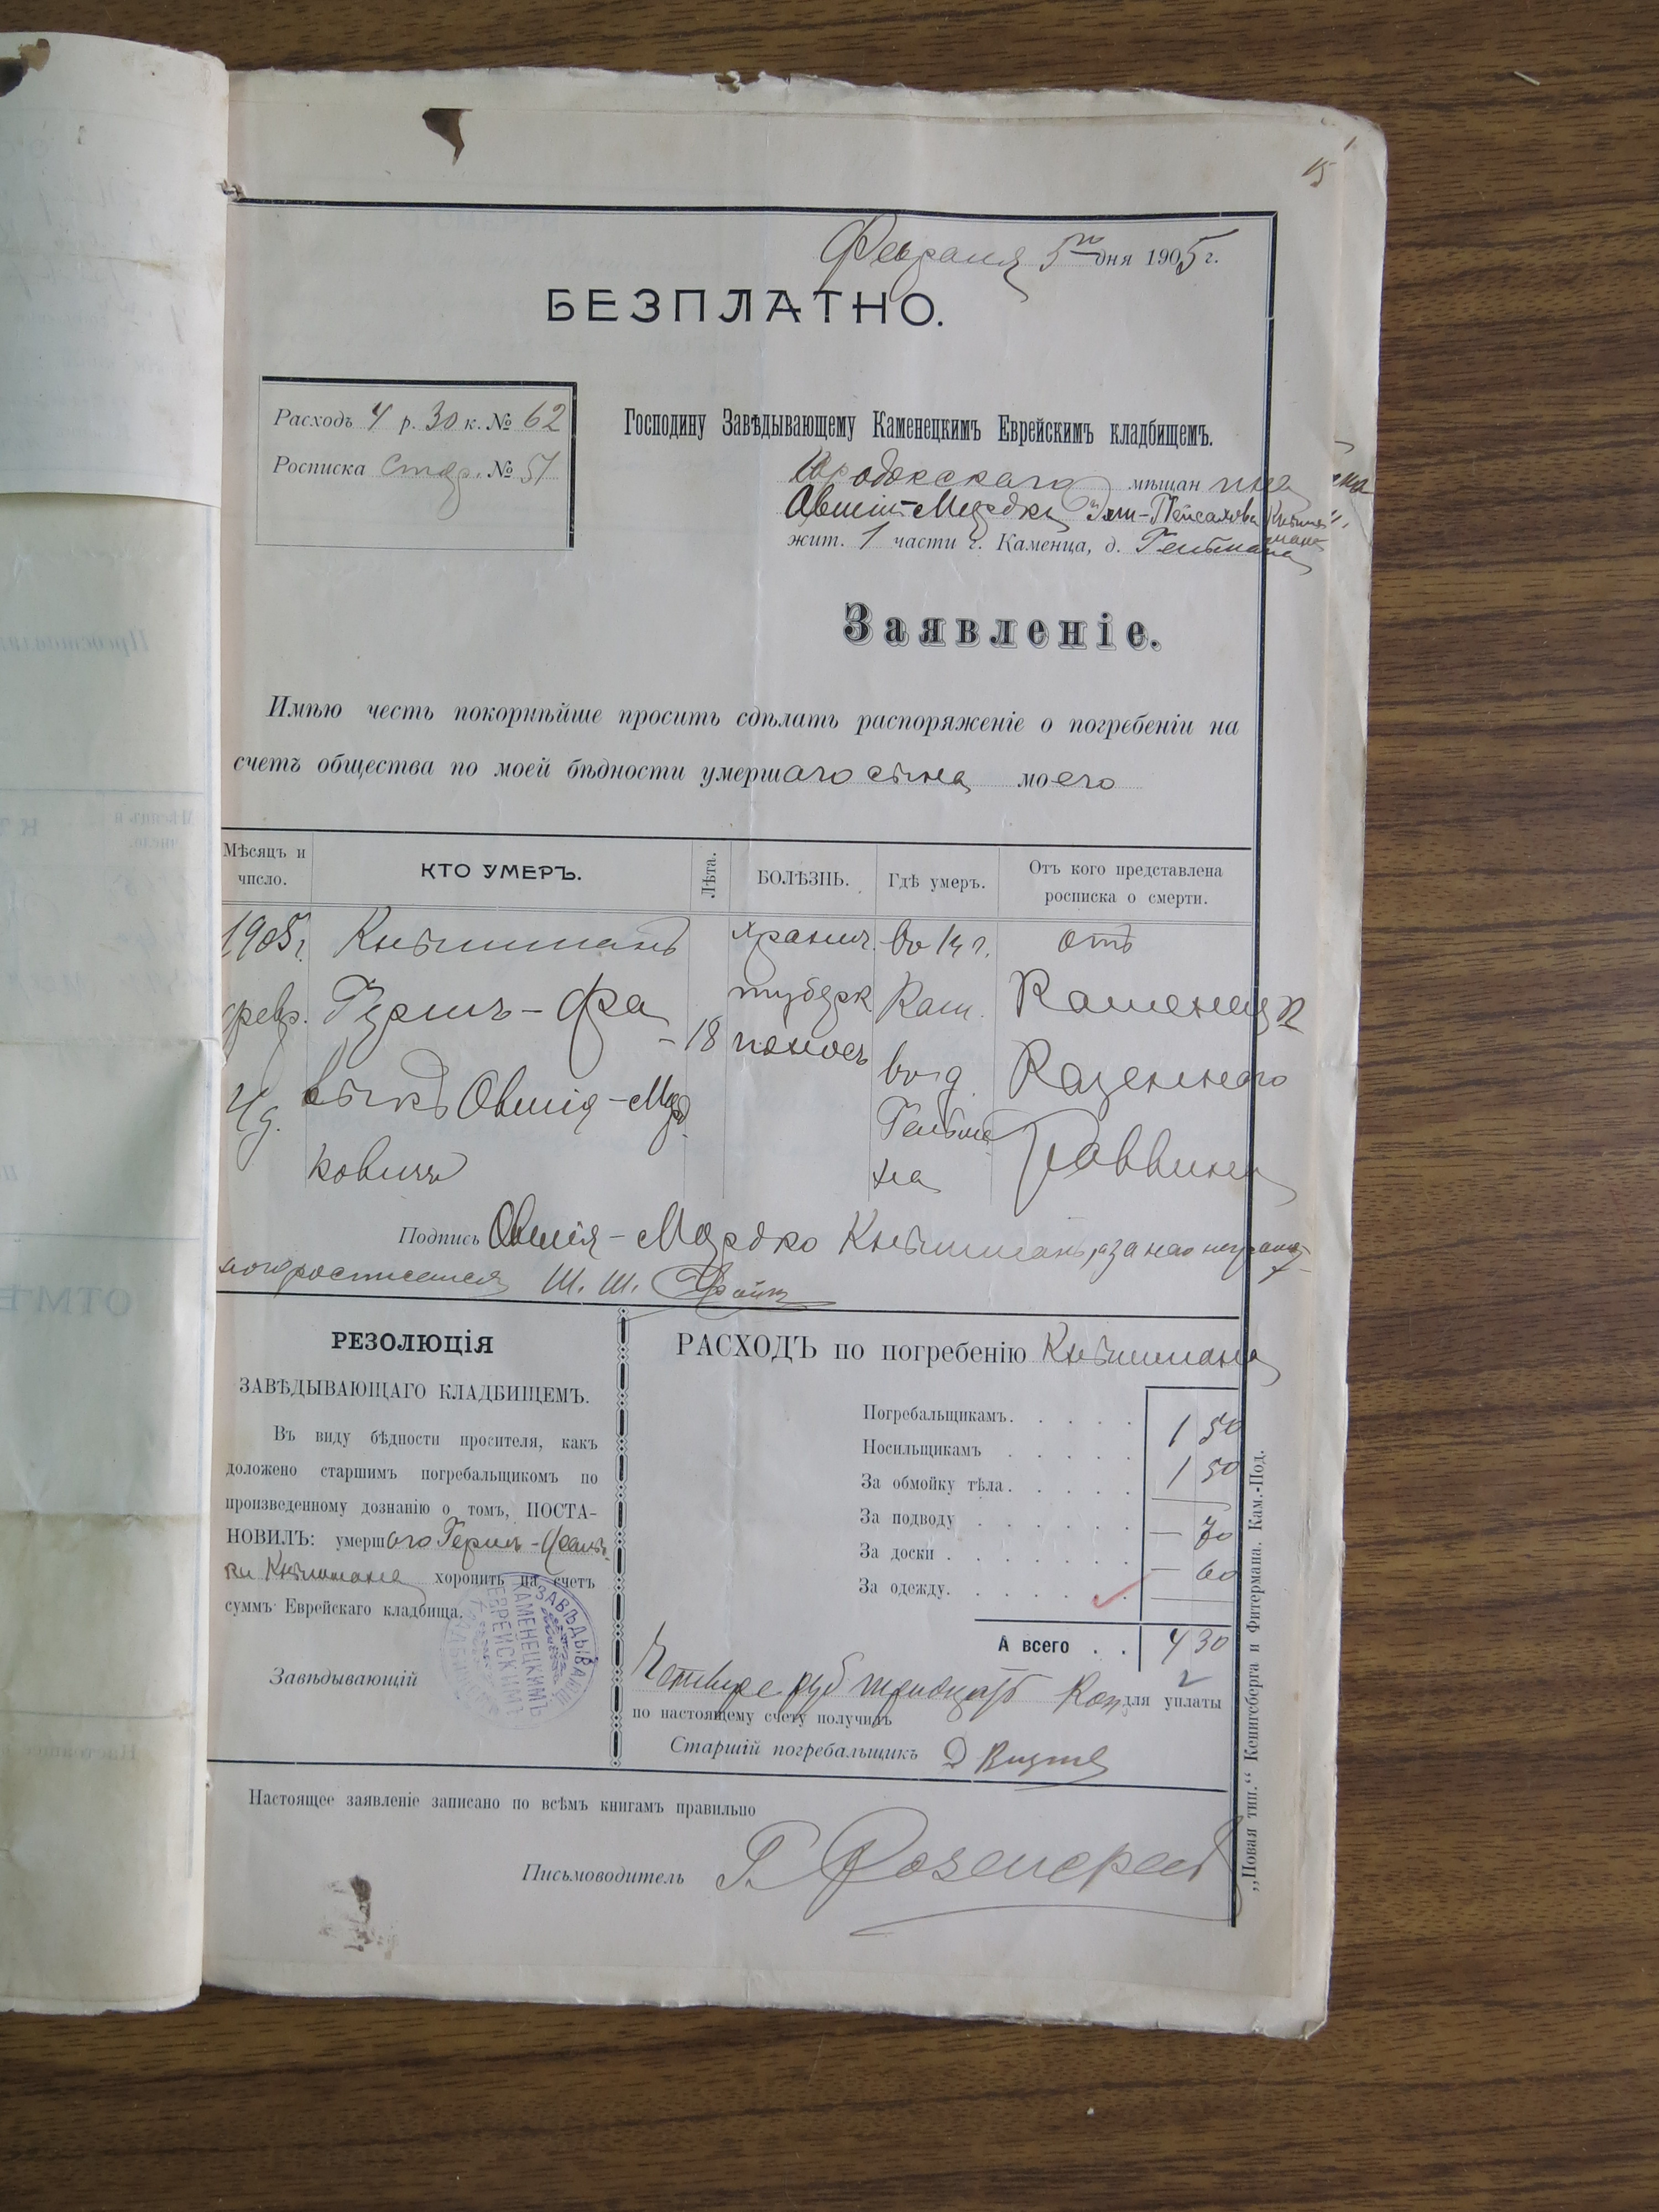 15
Февраля 5го дня 1905 г.
БЕЗПЛАТНО.
Расходъ 4 р. 30 к. № 62
Росписка стар. № 51
Господину Завѣдывающему Каменецкимъ Еврейскимъ кладбищемъ.
Городокскаго мѣщанина
Овшія-Мордка Эли-Пейсахова
жит. 1 части г. Каменца, д. Гельмана
Заявленіе.
Имѣю честь покорнѣйше просить сдѣлать распоряженіе о погребеніи на
счетъ общества по моей бѣдности умершаго сына моего
Мѣсяцъ и число.
КТО УМЕРЪ.
Лѣта.
БОЛѢЗНЬ.
Гдѣ умеръ.
Отъ кого представлена росписка о смерти.
1905 г. февр. 4 д.
Кнѣшманъ
Гершъ-
Овшія-Морд
ковичъ
18
хронич.
туберк
поносъ
Во 1 ч г.
Кам.
во д.
Гельма
на
отъ
Каменецк
Казеннаго
Раввина
Подпись Овшія-Мордко Кнѣшманъ, а за него неграмот
наго росписался Ш. Ш.
РЕЗОЛЮЦІЯ
ЗАВѢДЫВАЮЩАГО КЛАДБИЩЕМЪ.
Въ виду бѣдности просителя, какъ
доложено старшимъ погребальщикомъ по
произведенному дознанію о томъ, ПОСТА-
НОВИЛЪ: умершаго Герша-
ки Кнѣшмана хоронить на счетъ
суммъ Еврейскаго кладбища.
Завѣдывающій
ЗАВѢДЫВАЮЩ
КАМЕНЕЦКИМЪ
ЕВРЕЙСКИМЪ
РАСХОДЪ по погребенію Кнѣшмана
Погребальщикамъ. 1 50
Носильщикамъ 1 50
За обмойку тѣла.
За подводу — 70
За доски — 60
За одежду.
А всего 4 30
Четыре руб тридцать Коп для уплаты
по настоящему счету получилъ
Старшій погребальщикъ Д
Настоящее заявленіе записано по всѣмъ книгамъ правильно
Письмоводитель
„Новая тип.“ Кенигсберга и Фитермана. Кам.-Под.